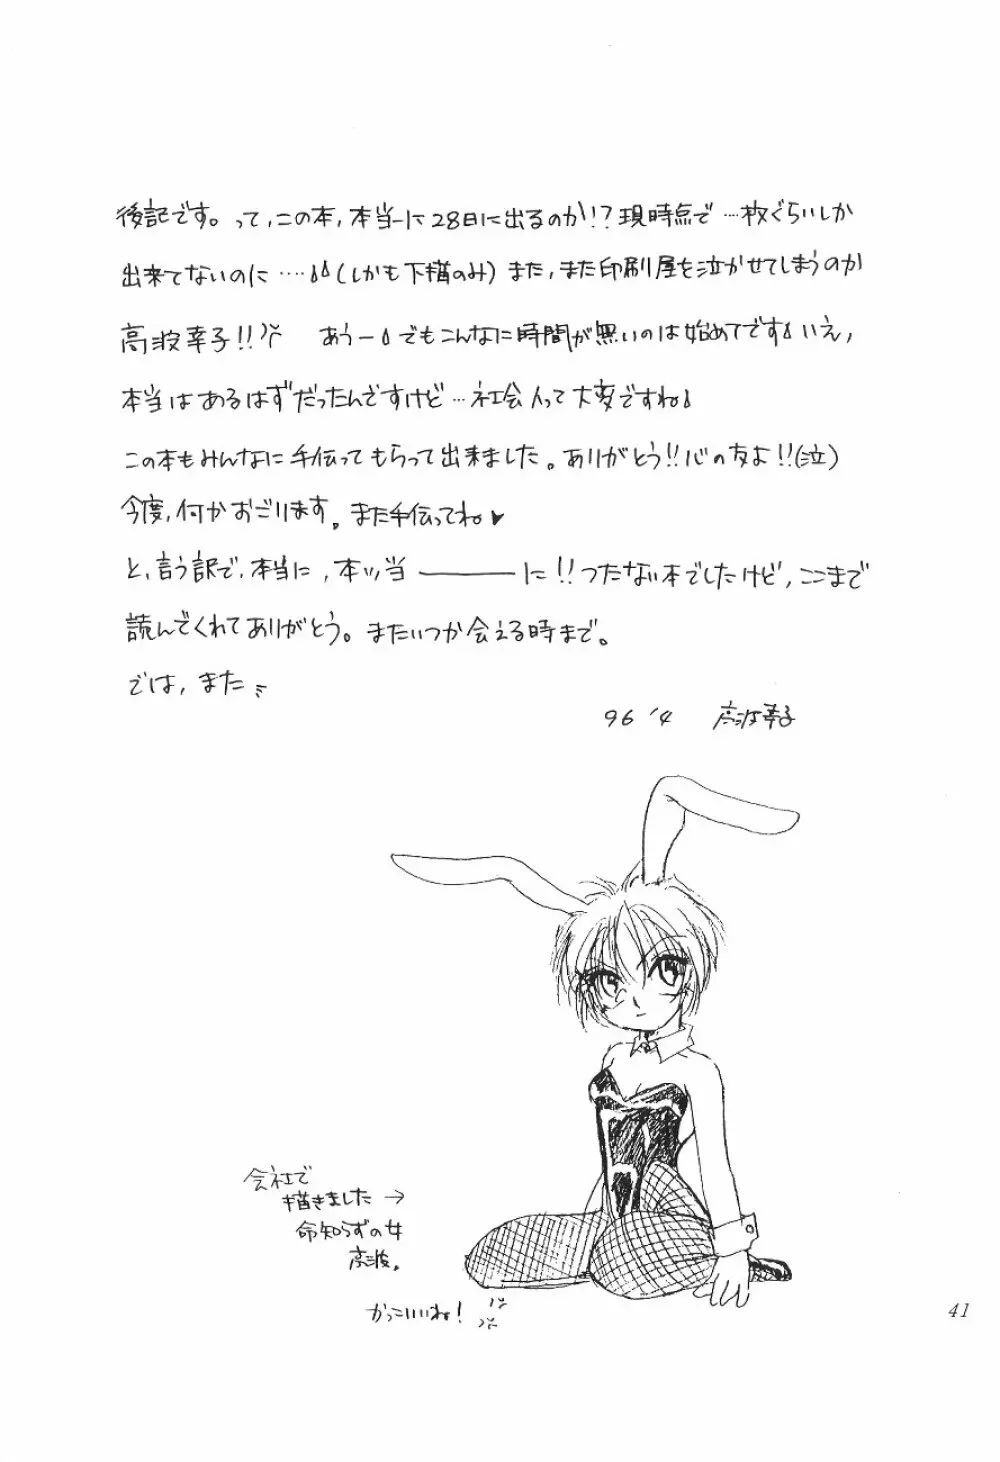 後記です。って,この本,本当ーに28日に出るのか!?現時点で…枚ぐらいしか
出来てないのに……(しかも下描のみ)また,また印刷屋を泣かせてしまうのか
高波幸子!! あうーでもこんなに時間が無いのは始めてですいえ,
本当はあるはずだったんですけど…社会人って大変ですね
この本もみんなに手伝ってもらって出来ました。ありがとう!!心の友よ!!(泣)
今度,何かおごります。また手伝ってね♥
と,言う訳で,本当に,本ッ当————に!!つたない本でしたけど,ここまで
読んでくれてありがとう。またいつか会える時まで。
では,また
96 '4 高波幸子
会社で
描きました→
命知らずの女
高波。
かっこいいね!
41